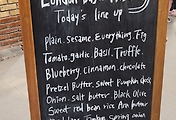 London
Today's line up
Plain. Sesame. Everything. Fig
Tomato. garlic. Basil. Truffle.
Blueberry. Cinnamon. chocolate
Pretzel Butter. Sweet Pumpkin
Onion. Salt butter Black Olive
Sweet red bean rice butter
Spring onion